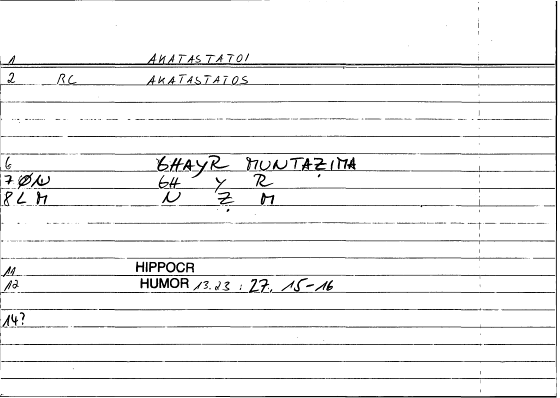 1 AKATASTATOI
2 RC AKATASTATOS
6 GHAYR MUNTAẒIMA
7 ØN GH Y R
8 LM N Ẓ M
11 HIPPOCR
12 HUMOR 13.23 : 27. 15-16
14?